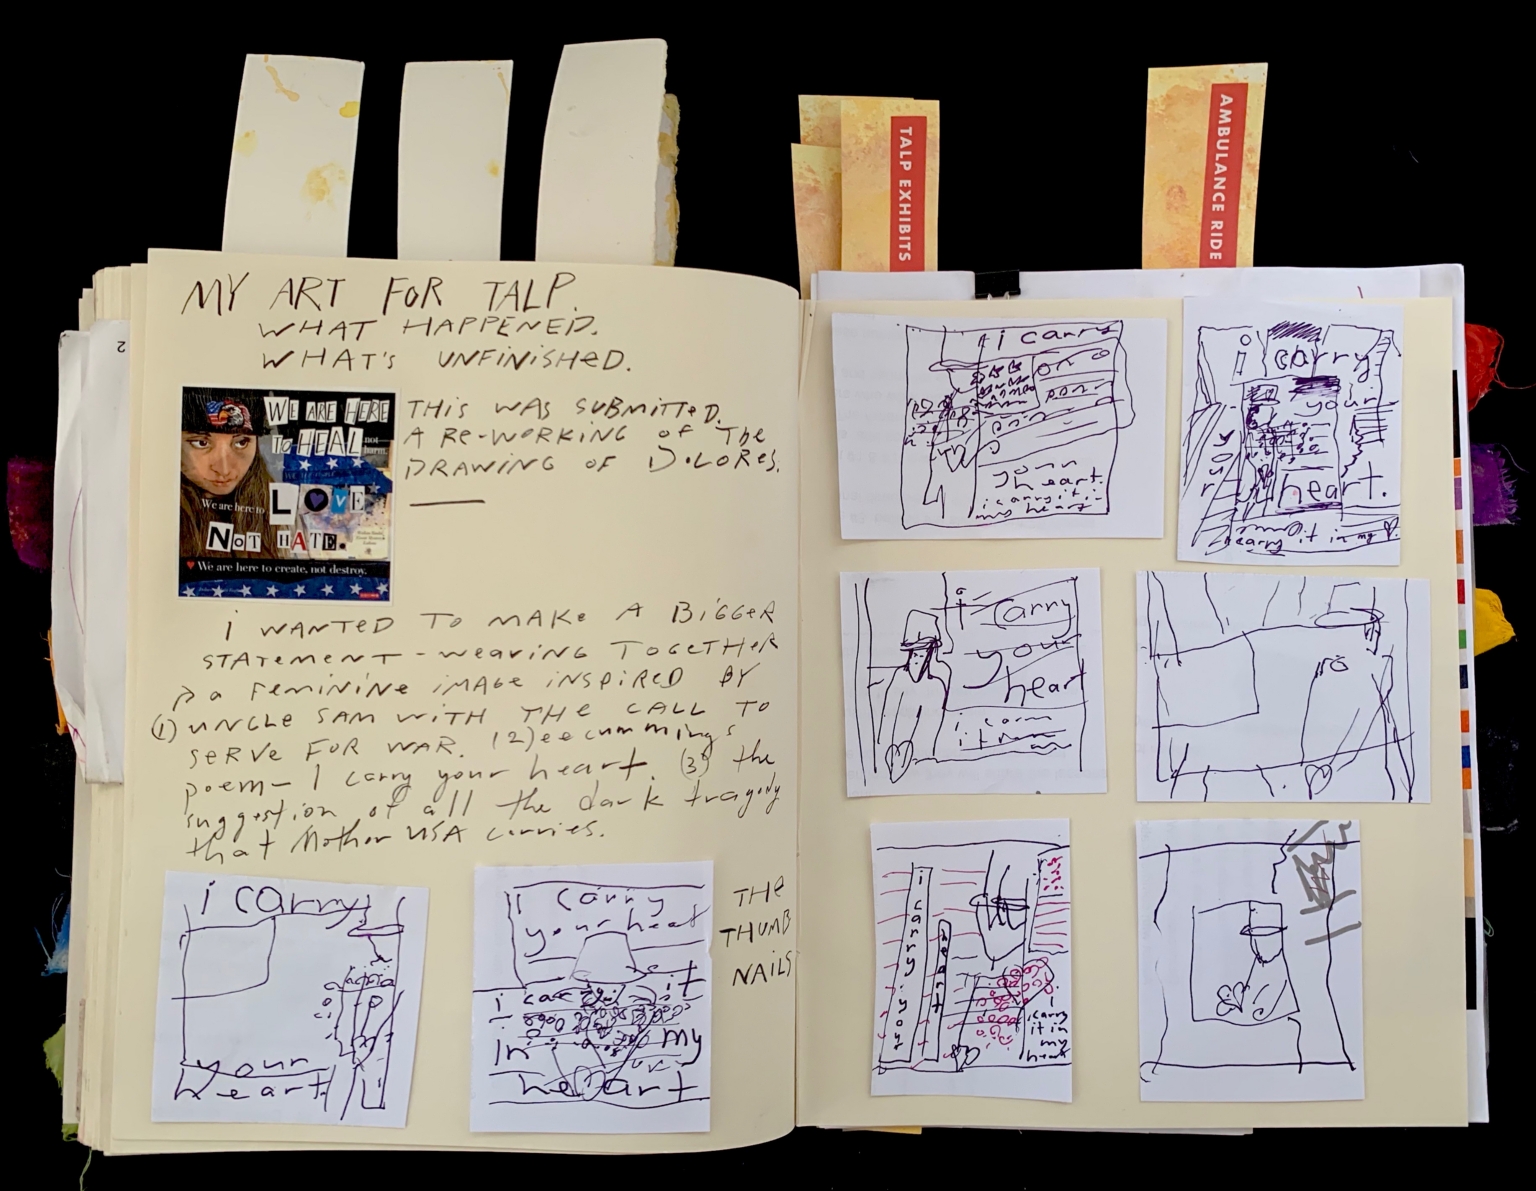 TALP EXHIBITS
AMBULANCE RIDE
2
MY ART FOR TALP.
WHAT HAPPENED.
WHAT'S UNFINISHED.
WE ARE HERE
TO HEAL not
harm.
We are here to LOVE
NOT HATE.
We are here to create, not destroy.
THIS WAS SUBMITTED.
A RE-WORKING OF THE
DRAWING OF DOLORES.
i WANTED TO MAKE A BIGGER
STATEMENT - WEAVING TOGETHER
a FEMININE IMAGE INSPIRED BY
(1) UNCLE SAM WITH THE CALL TO
SERVE FOR WAR. (2) ee cummings
poem - I carry your heart. (3) the
suggestion of all the dark tragedy
that Mother USA carries.
THE
THUMB
NAILS
i carry
your
heart
i carry
your heart
i carry it
in my
heart
i carry
your
heart.
i carry it in
my heart
i carry
your
your
heart.
carry it in my
i carry
your
heart
i carry your
heart
i
carry
it in
my
heart